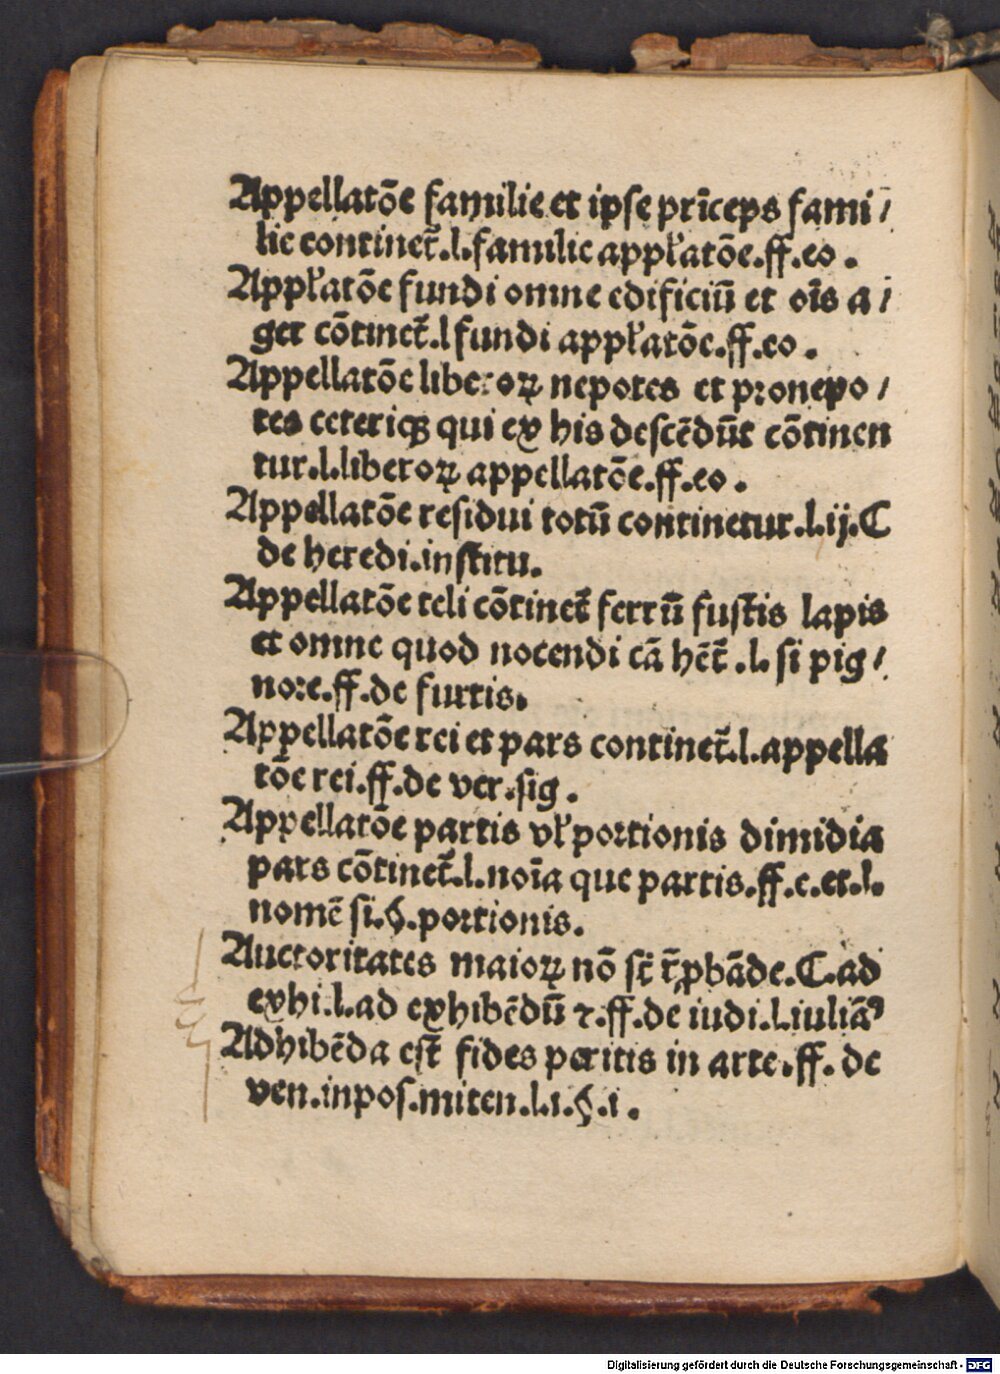 Appellatōe familie et ipse prīceps fami/
lie continet̄.l.familie appl̓atōe.ff.eo.
Appl̓atōe fundi omne edificiū et oīs a/
ger cōtinet̄.l fundi appl̓atōe.ff.eo.
Appellatōe liberoꝝ nepotes et pronepo/
tes ceteriqꝫ qui ex his descēdūt cōtinen
tur.l.liberoꝝ appellatōe.ff.eo.
Appellatōe residui totū continetur.l.ij.C
de heredi.institu.
Appellatōe teli cōtinet̄ ferrū fustis lapis
et omne quod nocendi cā hēt̄.l.si pig/
nore.ff.de furtis.
Appellatōe rei et pars continet̄.l.appella
tōe rei.ff.de ver.sig.
Appellatōe partis vl̓ portionis dimidia
pars cōtinet̄.l.noīa que partis.ff.e.et.l.
nomē si.§.portionis.
Auctoritates maioꝝ nō st̄ r̄ꝓbāde.C.ad
exhi.l.ad exhibēdū ⁊.ff.de iudi.l.iuliāꝰ
Adhibēda est̄ fides peritis in arte.ff.de
ven.inpos.miten.l.i.§.i.
Digitalisierung gefördert durch die Deutsche Forschungsgemeinschaft - DFG